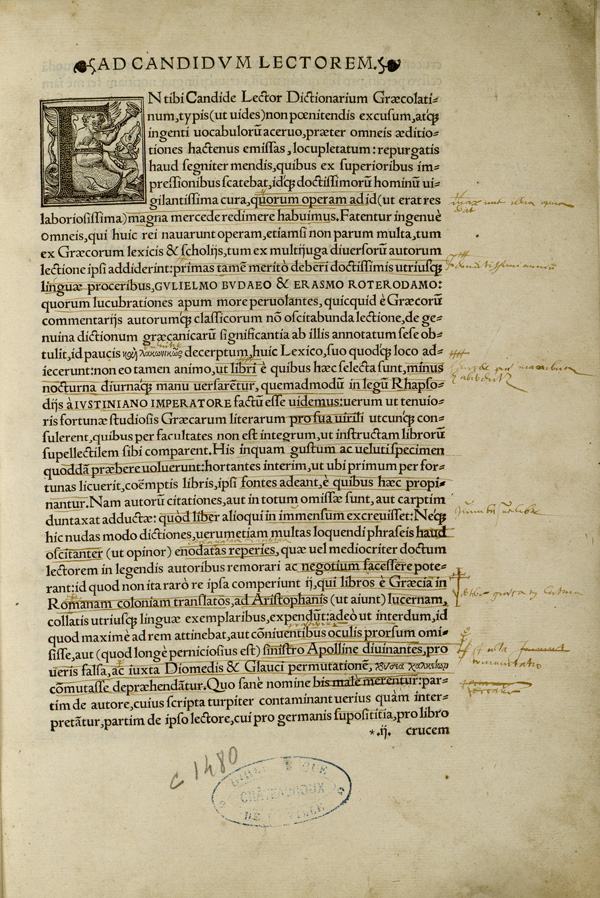 AD CANDIDVM LECTOREM.
EN tibi Candide Lector Dictionarium Græcolati-
num, typis (ut uides) non pœnitendis excusum, atq́;
ingenti uocabulorũ aceruo, præter omneis æditio-
tiones hactenus emissas, locupletatum: repurgatis
haud segniter mendis, quibus ex superioribus im-
pressionibus scatebat, idq́; doctissimorũ hominũ ui-
gilantissima cura, quorum operam ad id (ut erat res
laboriosissima) magna mercede redimere habuimus. Fatentur ingenuè
omneis, qui huic rei nauarunt operam, etiamsi non parum multa, tum
ex Græcorum lexicis & scholijs, tum ex multijuga diuersorũ autorum
lectione ipsi addiderint: primas tamẽ meritò deberi doctissimis utriusq́;
linguæ proceribus, GVLIELMO BVDAEO & ERASMO ROTERODAMO:
quorum lucubrationes apum more peruolantes, quicquid è Græcorũ
commentarijs autorumq́; classicorum nõ oscitabunda lectione, de ge-
nuina dictionum græcanicarũ significantia ab illis annotatum sese ob-
tulit, id paucis καὶ λακωνικῶς decerptum, huic Lexico, suo quodq́; loco ad-
iecerunt: non eo tamen animo, ut libri è quibus hæc selecta sunt, minus
nocturna diurnaq́; manu uersarẽtur, quemadmodũ in legũ Rhapso-
dijs à IVSTINIANO IMPERATORE factũ esse uidemus: uerum ut tenuio-
ris fortunæ studiosis Græcarum literarum pro sua uirili utcunq́; con-
sulerent, quibus per facultates non est integrum, ut instructam librorũ
supellectilem sibi comparent. His inquam gustum ac ueluti specimen
quoddã præbere uoluerunt: hortantes interim, ut ubi primum per for-
tunas licuerit, coëmptis libris, ipsi fontes adeant, è quibus hæc propi-
nantur. Nam autorũ citationes, aut in totum omissæ sunt, aut carptim
duntaxat adductæ: quòd liber alioqui in immensum excreuisset: Neq́;
hic nudas modo dictiones, uerumetiam multas loquendi phraseis haud
oscitanter (ut opinor) enodatas reperies, quæ uel mediocriter doctum
lectorem in legendis autoribus remorari ac negotium facessere pote-
rant: id quod non ita rarò re ipsa comperiunt ij, qui libros è Græcia in
Romanam coloniam translatos, ad Aristophanis (ut aiunt) lucernam,
collatis utriusq́; linguæ exemplaribus, expendũt: adeò ut interdum, id
quod maximè ad rem attinebat, aut cõniuentibus oculis prorsum omi-
sisse, aut (quod longè perniciosius est) sinistro Apolline diuinantes, pro
ueris falsa, ac iuxta Diomedis & Glauci permutationẽ, χρυσια χαλκείων
cõmutasse depræhendãtur. Quo sanè nomine bis male merentur: par-
tim de autore, cuius scripta turpiter contaminant uerius quàm inter-
pretãtur, partim de ipso lectore, cui pro germanis suposititia, pro libro
*.ij. crucem
c 1480
CHATEAUROUX